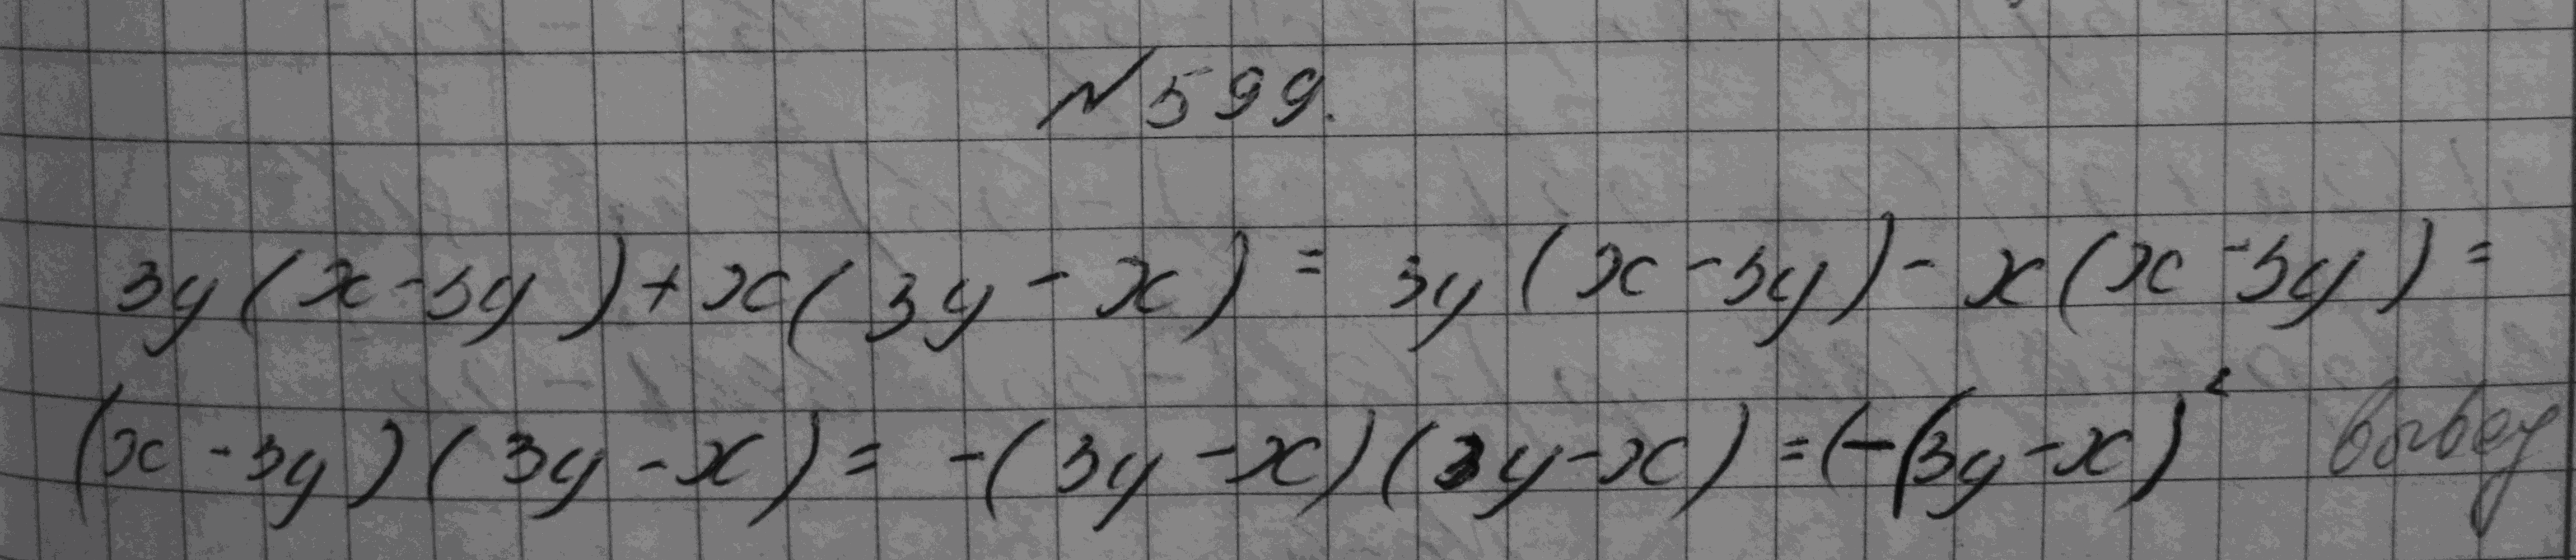 № 599.
3y(x-3y)+x(3y-x)=3y(x-3y)-x(x-3y)=
(x-3y)(3y-x)=-(3y-x)(3y-x)=(-(3y-x)²